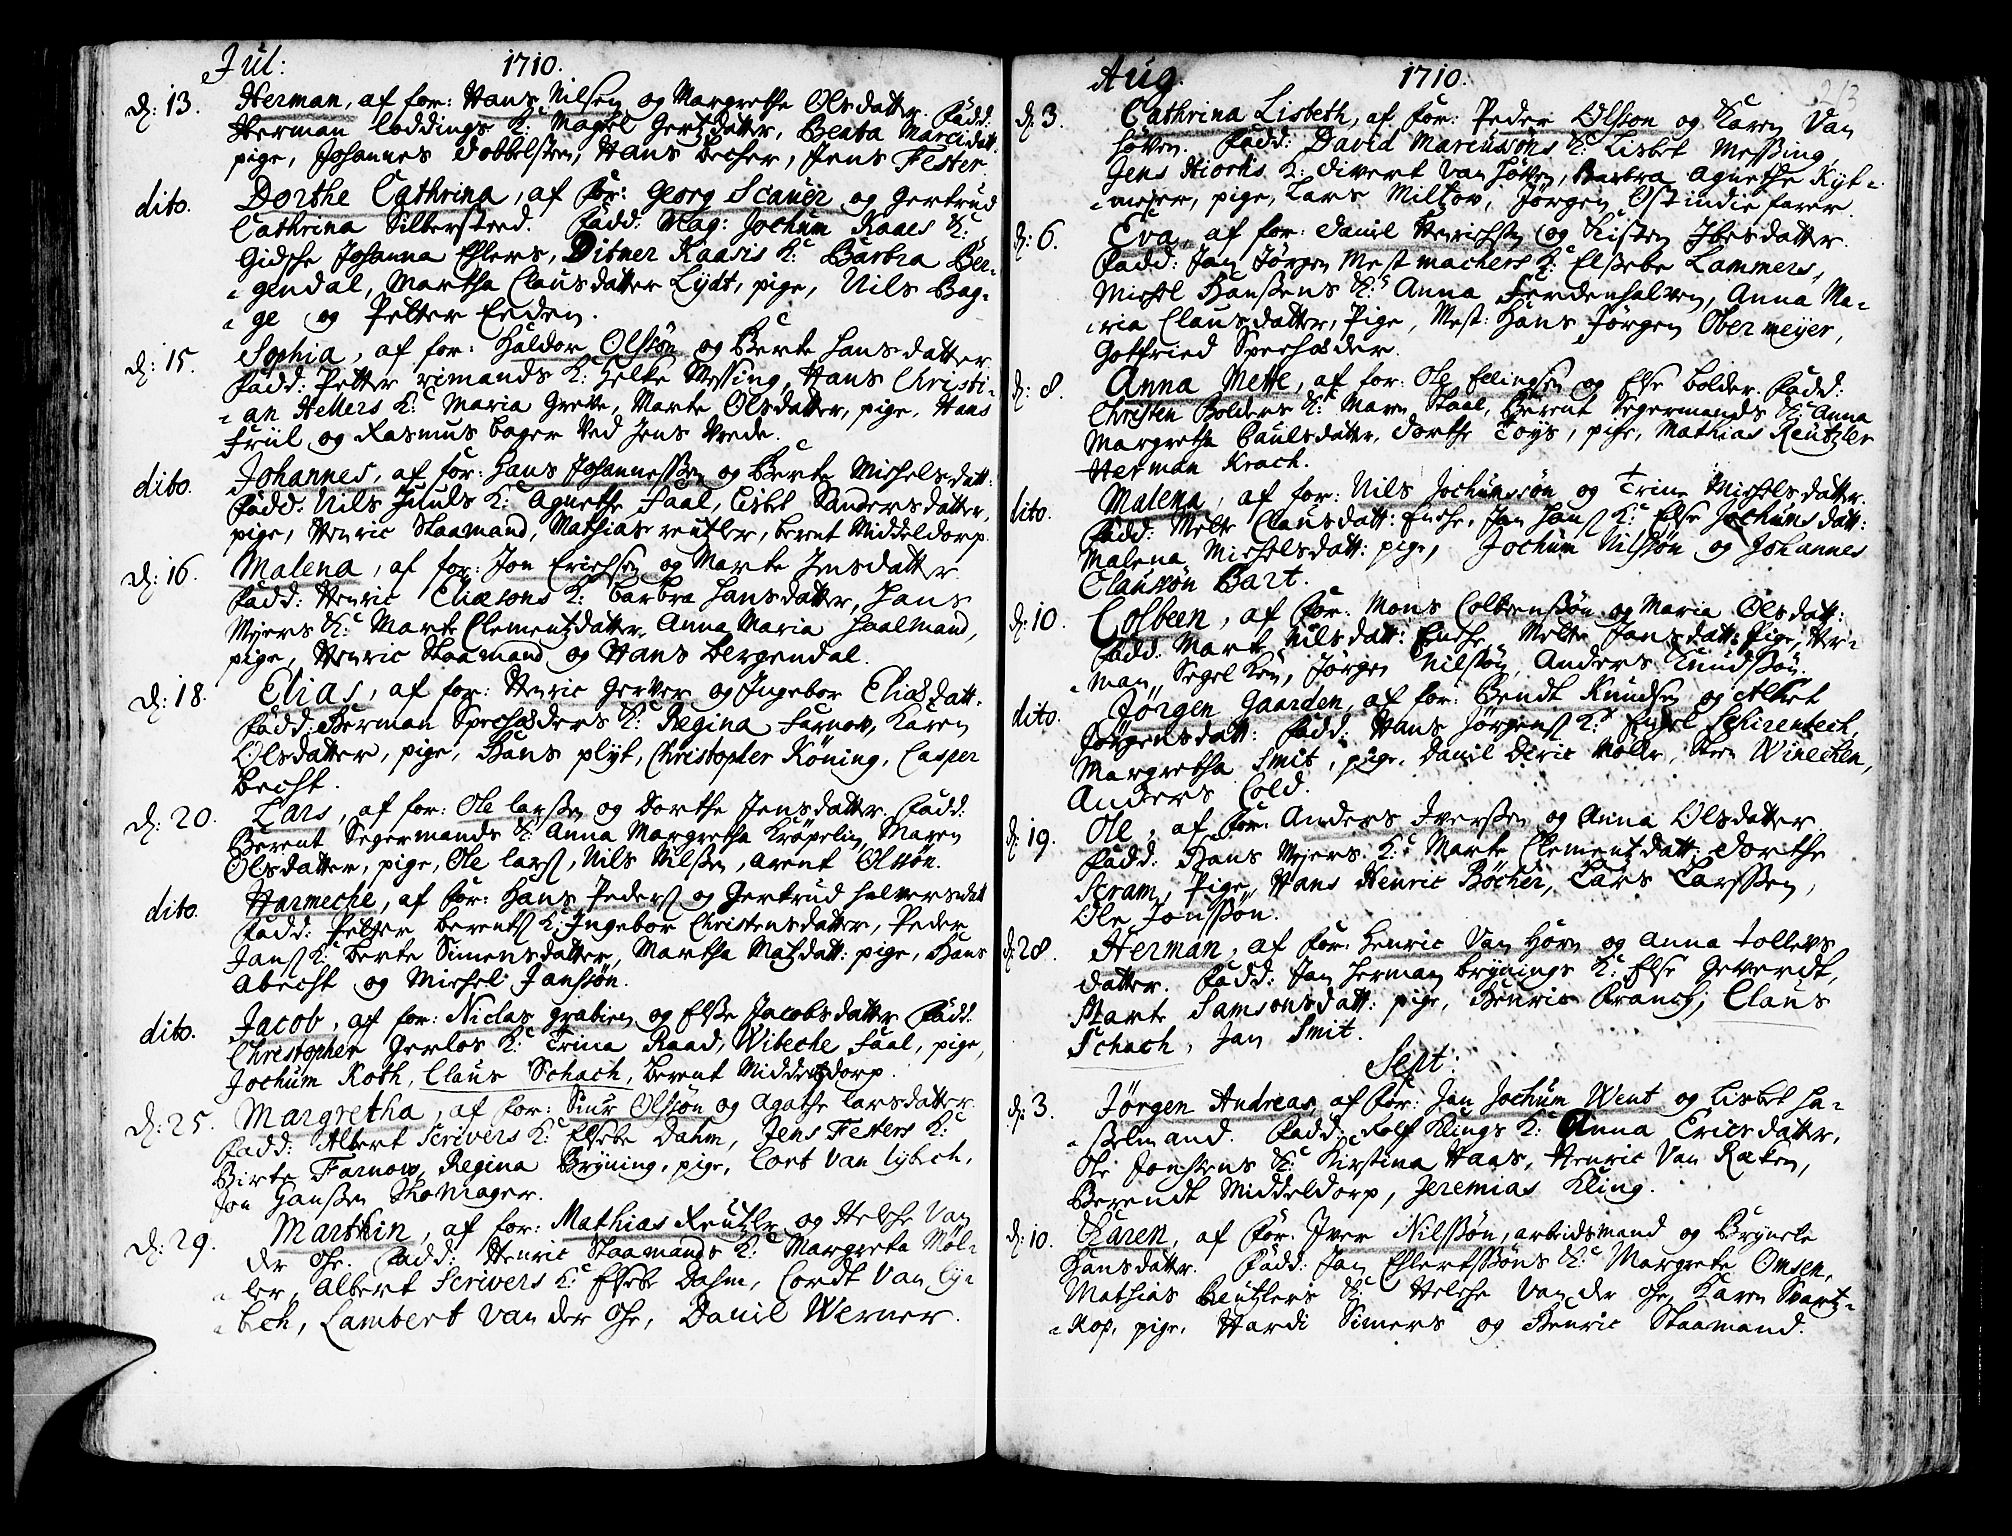 Jul: 1710.
d: 13. Herman, af for: Hans Nilsen og Margrethe Olsdatter. Fadd:
Herman Loddings K: Magdl Gertzdatter, Beata Marcidatt:
pige, Johannes Dobbelsten, Hans Becher, Jens Fester.
dito. Dorthe Cathrina, af for: Georg Scauer og Gertrud
Cathrina Silbersteed. Fadd: Mag: Jochum Kaaes K:
Gidsche Johanna Ehlers, Ditmer Kaasis K: Barbra Ber-
gendal, Martha Clausdatter Lydt, pige, Nils Bag-
ge og Petter Eeden.
d: 15. Sophia, af for: Haldor Olssøn og Berte Hansdatter
Fadd: Petter rimands K: Helke Messing, Hans Christi-
an Hellers K: Maria Greve, Marte Olsdatter, pige, Hans
Friil og Rasmus Bager ved Jens Vrede.
dito. Johannes, af for: Hans Johannessen og Berte Michelsdatt:
Fadd: Nils Juuls K: Agnethe Faal, Lisbt Sandersdatter,
pige, Henric Staamand, Mathias reutler, berent Middeldorp.
d: 16. Malena, af for: Jon Erichsen og Marte Jensdatter
Fadd: Henric Eliæsons K: Barbra Hansdatter, Hans
Meyers K: Marte Clementzdatter, Anna Maria Haalmand,
pige, Henric Staamand og Hans Bergendal.
d: 18. Elias, af for: Henric Gerver og Ingebor Eliasdatt.
Fadd: Herman Specholders K: Regina Farnow, Karen
Olsdatter, pige, Hans plyt, Christopher Køning, Casper
Becht.
d: 20. Lars, af for: Ole larssen og Dorthe Jensdatter Fadd:
Berent Segermands K: Anna Margretha Krøpelin, Maren
Olsdatter, pige, Ole larss, Nils Nilssen, arent Olssøn.
dito. Harmeche, af for: Hans Peders og Gertrud Halversdatt
Fadd: Petter berents K: Ingebor Christensdatter, Peder
Jans K: Berte Simensdatter, Martha Matzdatt: pige, Hans
Abecht og Michel Janssøn.
dito. Jacob, af for: Niclas grabien og Else Jacobsdatter Fadd:
Christopher Gerlos K: Trina Raad, Wibeche Faal, pige,
Jochum Roth, Claus Schach, Berent Middeldorp.
d: 25. Margretha, af for: Siur Olssøn og Agathe larsdatter
Fadd: Albert Scrivers K: Elsebe Dahm, Jens Festers K:
Birte Farnow, Regina Bryning, pige, Cort Van Lybech,
Jon Hanssen Skomager.
d: 29. Marthin, af for: Mathias Reutzler og Helche Van
der Ohe. Fadd: Henric Staamands K: Margreta Møl-
ler, Albert Scrivers K: Elsebe Dahm, Cordt Van Ly-
bch, Lambert van der Ohe, Daniel Werner.
Aug. 1710. 213
d: 3. Cathrina Lisbeth, af for: Peder Olsson og Karen Van
Høven. Fadd: David Marcussøns K: Lisbet Messing,
Jens Hiorts K: Divert Van Høven, Barbra Agnethe Kyt-
meyer, pige, Lars Miltzov, Jørgen Ostindie farer.
d: 6. Eva, af for: Daniel Henrichsen og Kisten Ibesdatter.
Fadd: Jan Jørgen Mestmachers K: Elssebe Lammers,
Michl Hanssens K: Anna Ferdenhalven, Anna Ma-
ria Clausdatter, Pige, Mest: Hans Jørgen Obermeyer,
Gotfried Specholder.
d: 8. Anna Mette, af for: Ole Ellingsen og Else bolder. Fadd:
Christen Bolders K: Maren Staal, Berent Segermands K: Anna
Margretha Paulsdatter, Dorthe Toys, pige, Mathias Reutzler
Herman Krach.
dito. Malena, af for: Nils Jochumssøn og Trine Michelsdatter.
Fadd: Mette Clausdatt: Enche, Jan Jans K: Else Jochumsdatt:
Malena Michelsdatt: pige, Jochum Nilssøn og Johannes
Claussøn Bart.
d: 10. Colbeen, af for: Mons Colbenssøn og Maria Olsdatt:
Fadd: Marte Nilsdatt: Enche, Mette Jansdatt: Pige, Her-
man Segelken, Jørgen Nilssøn, Anders Knudssøn
dito. Jørgen Gaarden, af for: Bendt Knudsen og Albet
Jørgensdatt: Fadd: Hans Jørgens K: Engel Schirenbech,
Margretha Smit, pige, Daniel Deric Molle, Sten Winechen,
Anders Cold.
d: 19. Ole, af for: Anders Iverssen og Anna Olsdatter
Fadd: Hans Meyers K: Marte Clementzdatt: Dorthe
Scram, Pige, Hans Henric Bøcher, Lars Larssen,
Ole Jonssøn.
d: 28. Herman, af for: Henric Van Horn og Anna Tollevs
datter. Fadd: Jan Herman brynings K: Else Geverdt,
Marte Samsonsdatt: pige, Henric Franch, Claus
Schach, Jan Smit.
Sept:
d: 3. Jørgen Andreas, af for: Jan Jochum Went og Lisbet Ha-
selmand. Fadd: Rolf Klings K: Anna Ericsdatter,
Ole Jonssens K: Kirstina Haas, Henric Van Raken,
Berendt Middeldorp, Jeremias Kling.
d: 10. Karen, af for: Iver Nilssøn, arbidsmand og Brynele
Hansdatter. Fadd: Jan Ehlertssøns K: Margrete Omsen,
Mathias Reutzlers K: Helche Van der Ohe, Karen Svartz-
Kop, pige, Hardi Simers og Henric Staamand.